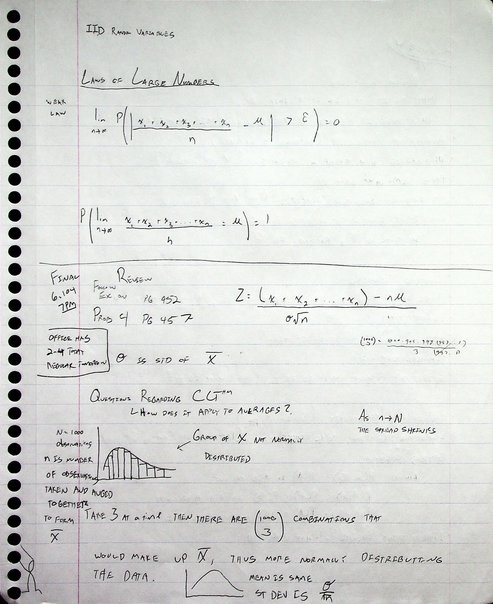 IID RANDOM VARIABLES
LAWS OF LARGE NUMBERS
WEAK LAW
lim n→∞ P(|(x₁ + x₂ + x₃ + ... + xₙ)/n - μ| > ε) = 0
P(lim n→∞ (x₁ + x₂ + x₃ + ... + xₙ)/n = μ) = 1
FINAL
6.104
7PM
REVIEW
FOLLOW
EX ON PG 452
PROB 4 PG 457
Z = ((x₁ + x₂ + ... + xₙ) - nμ)/(σ√n)
OFFICE HRS
2-4 THAT
REGULAR
σ IS STD OF X̅
QUESTIONS REGARDING CLTᵐ
↳ HOW DOES IT APPLY TO AVERAGES?
AS n→N
THE SPREAD SHRINKS
N=1000
OBSERVATIONS
n IS NUMBER
OF OBSERVATIONS
TAKEN AND AVGED
TOGETHER
TO FORM
X̅
GROUP OF X NOT NORMALLY
DISTRIBUTED
TAKE 3 AT A TIME THEN THERE ARE (1000 3) COMBINATIONS THAT
WOULD MAKE UP X̅, THUS MORE NORMALLY DISTRIBUTING
THE DATA.
MEAN IS SAME
ST DEV IS σ/√n